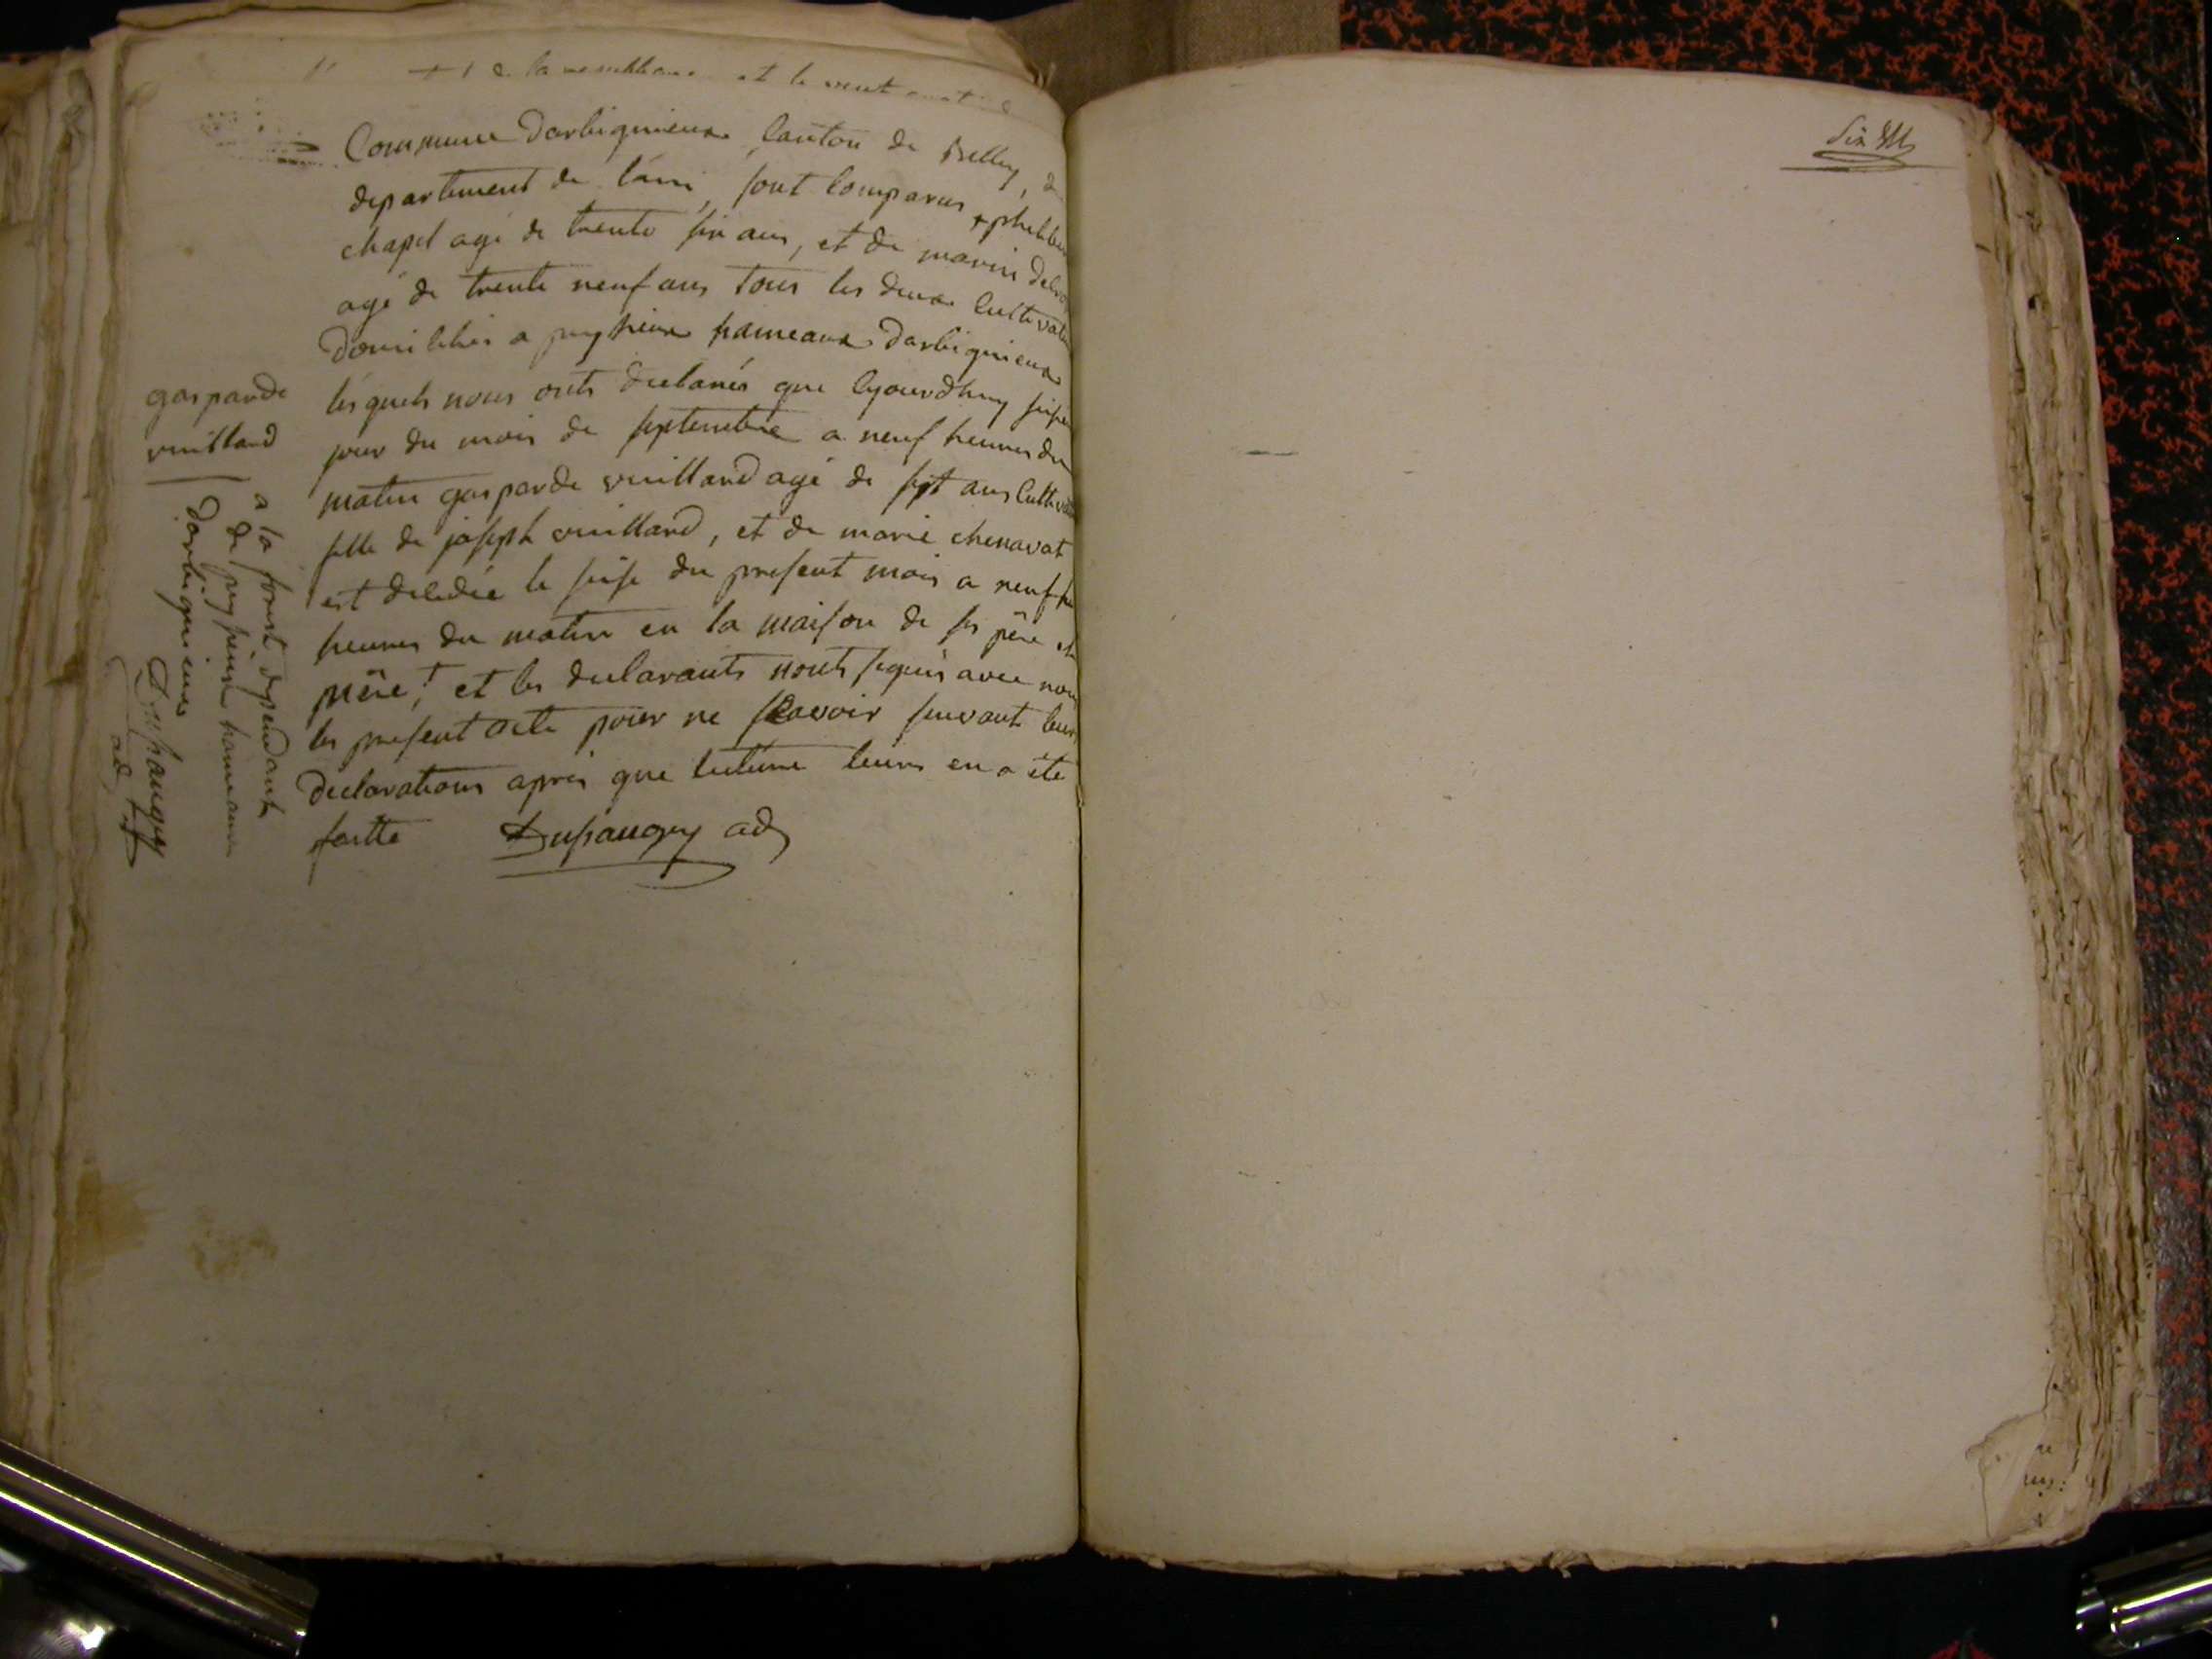 Commune Darbignieux Canton de Belley, de
departement de l'ain, sont comparus + philibert
chapel agé de trente six ans, et de marin
agé de trente neuf ans tous les deux Cultivateur
Domiciliés a peyzieux hameaux Darbignieux
lésquels nous onts declarés que Cejourdhuy seize
jour du mois de septembre a neuf heures du
matin gasparde vuillard agé de sept ans
fille de joseph vuillard, et de marie chenavat
est decedée le seise du present mois a neuf
heures du matin en la maison de ses père et
mère,+ et les declarants nonts signés avec nous
les present acte pour ne scavoir suivant leurs
declarations aprés que lecture leurs en a été
faitte Dupaugey adj
gasparde
vuillard
a la forest dependant
de peyzieux hameaux
Darbignieux Dupaugey
adj
Six